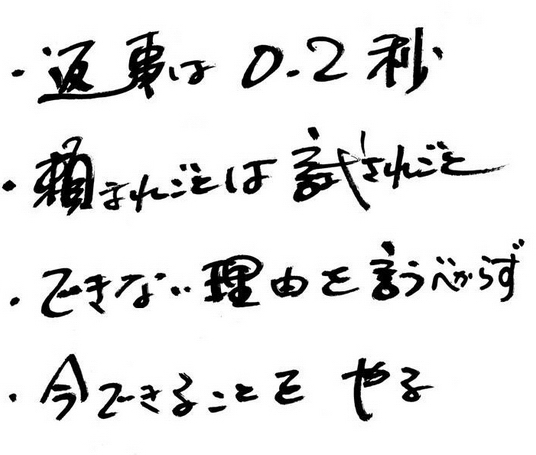 ・返事は 0.2秒
・頼まれごとは 試されごと
・できない理由を言うべからず
・今できることを やる